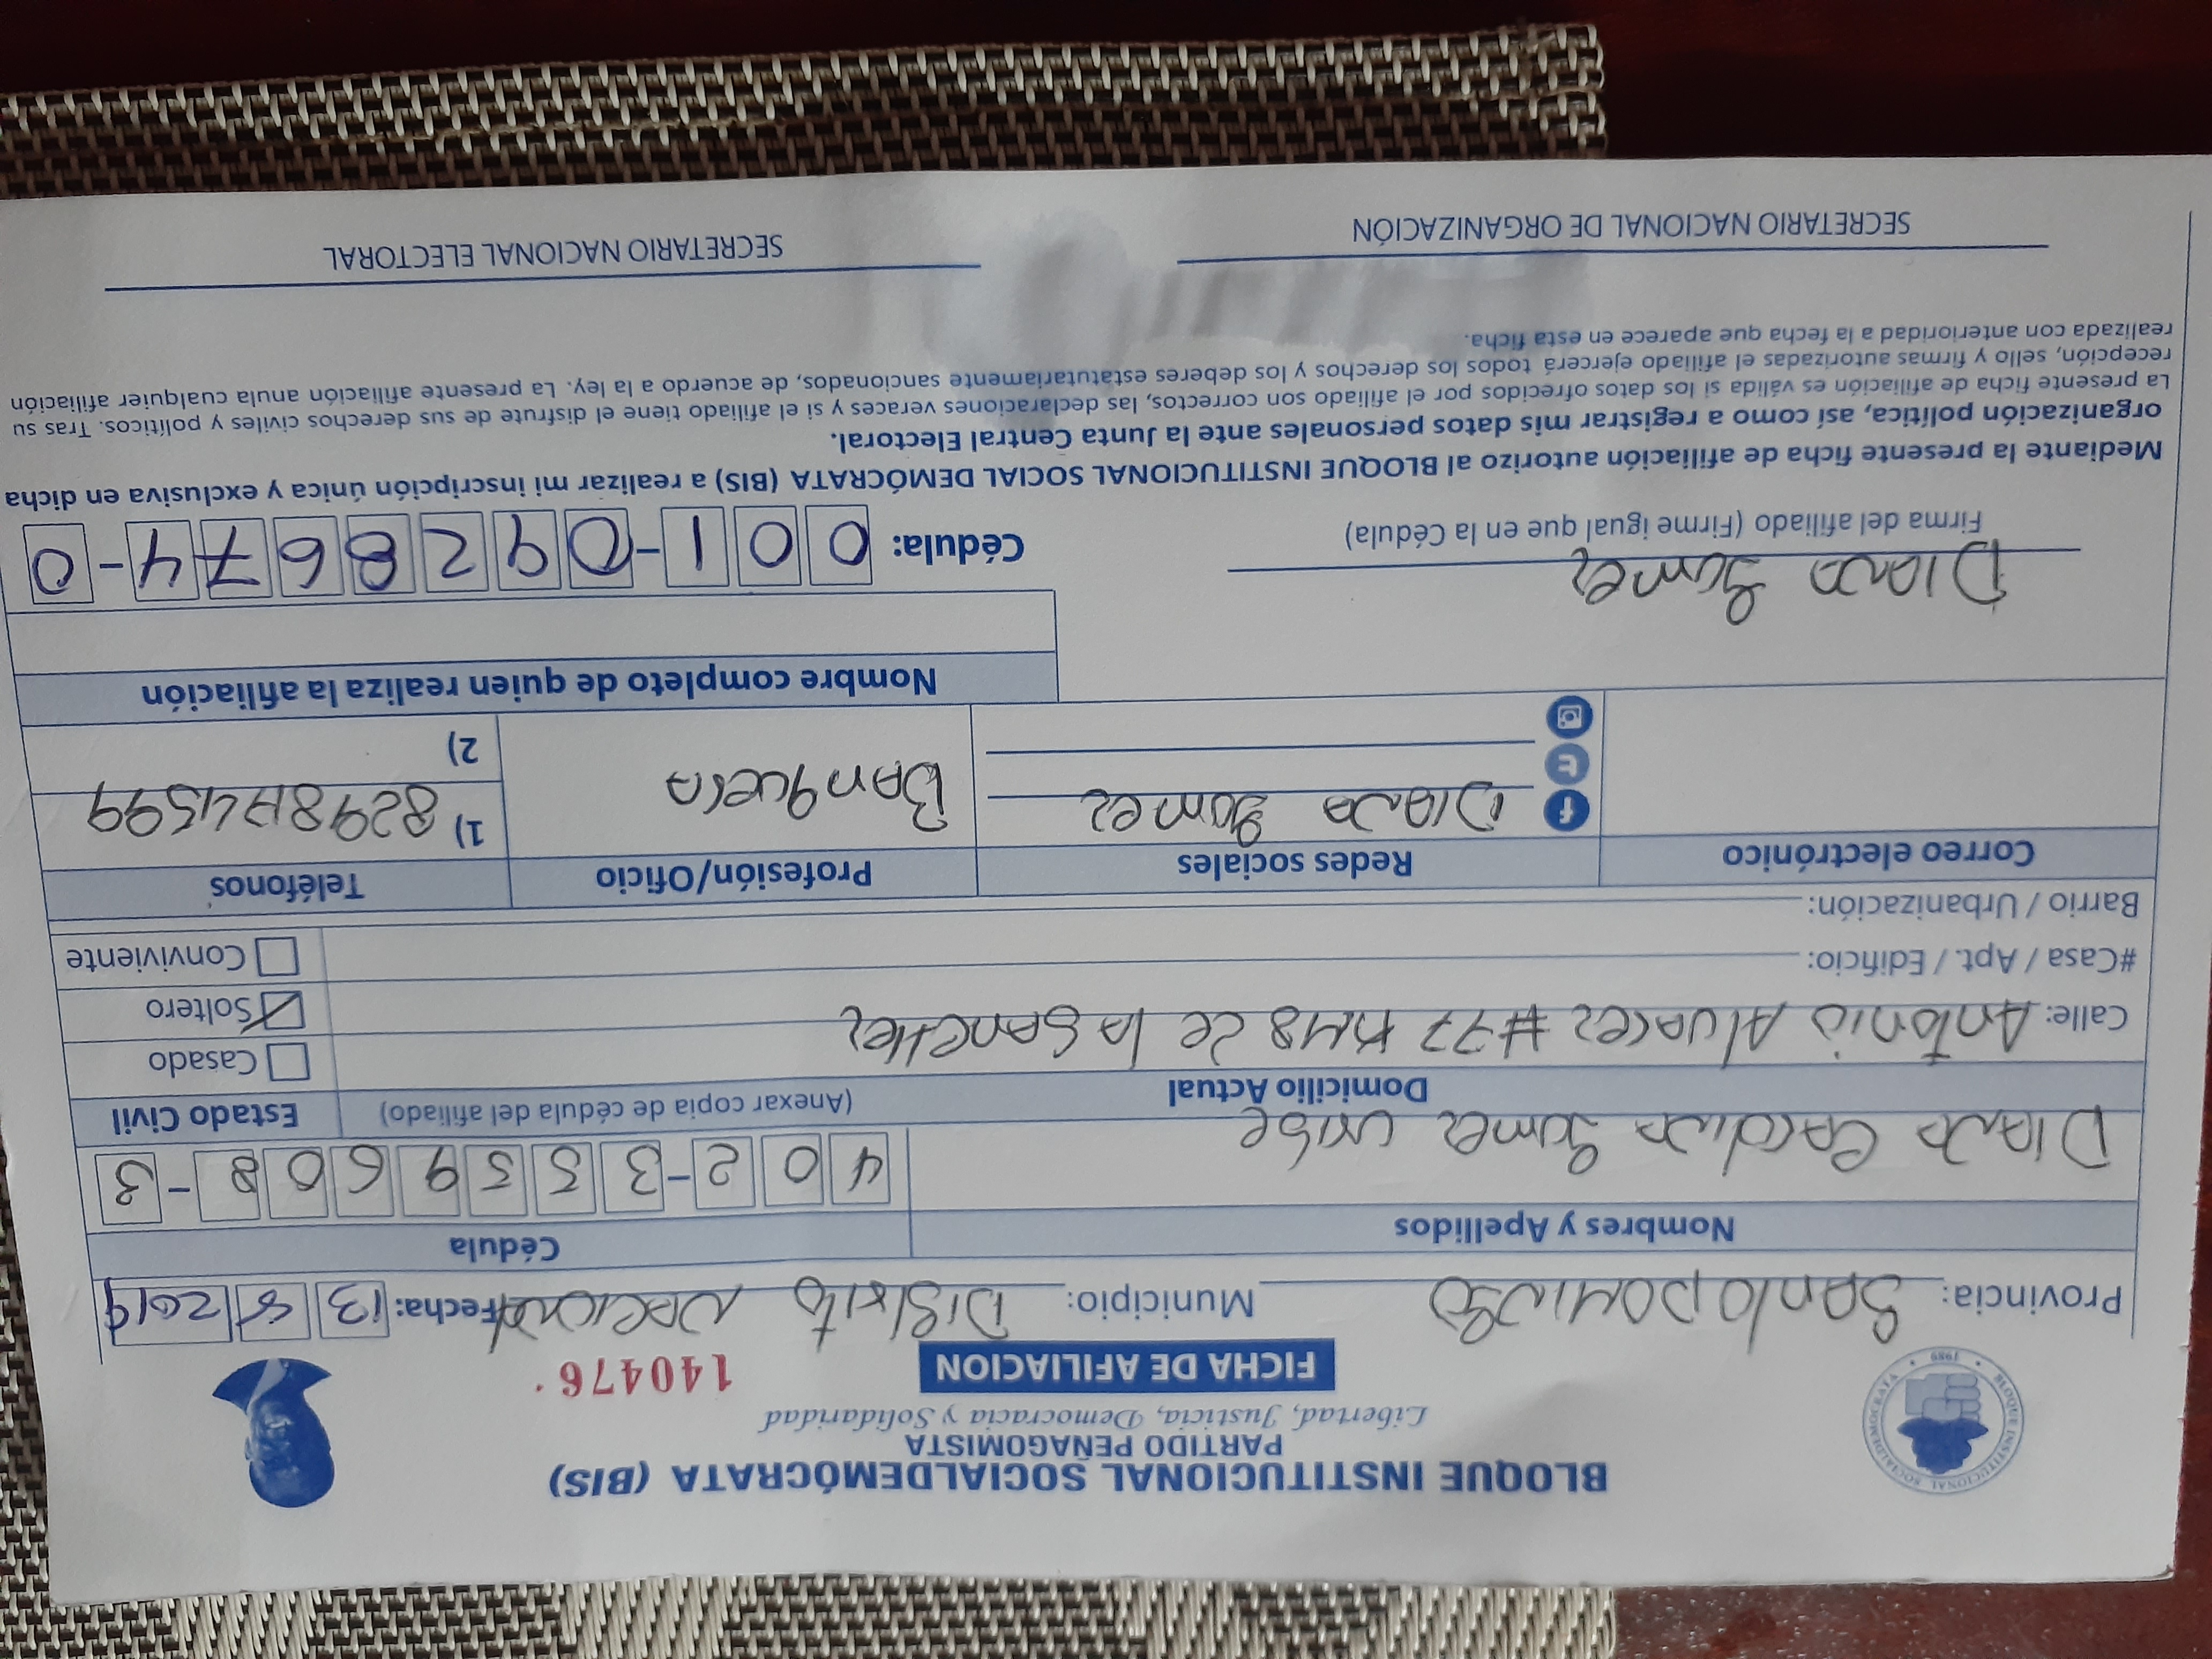 BLOQUE INSTITUCIONAL SOCIALDEMÓCRATA (BIS)
PARTIDO PEÑAGOMISTA
Libertad, Justicia, Democracia y Solidaridad
FICHA DE AFILIACION 140476
BLOQUE INSTITUCIONAL SOCIALDEMOCRATA 1989
Provincia: Santo Domingo Municipio: Distrito Nacional Fecha: 13 8 2019
Nombres y Apellidos Cédula
Diana Carolina Gomez Uribe 402-3559608-3
Domicilio Actual (Anexar copia de cédula del afiliado) Estado Civil
Calle: Antonio Alvarez #77 KM8 de la Sanchez
Casado
#Casa / Apt. / Edificio:
Soltero
Barrio / Urbanización:
Conviviente
Correo electrónico Redes sociales Profesión/Oficio Teléfonos
Diana Gomez Banquera 1) 829 4599
2)
Nombre completo de quien realiza la afiliación
Diana Gomez
Firma del afiliado (Firme igual que en la Cédula) Cédula: 001-0928674-0
Mediante la presente ficha de afiliación autorizo al BLOQUE INSTITUCIONAL SOCIAL DEMÓCRATA (BIS) a realizar mi inscripción única y exclusiva en dicha
organización política, así como a registrar mis datos personales ante la Junta Central Electoral.
La presente ficha de afiliación es válida si los datos ofrecidos por el afiliado son correctos, las declaraciones veraces y si el afiliado tiene el disfrute de sus derechos civiles y políticos. Tras su
recepción, sello y firmas autorizadas el afiliado ejercerá todos los derechos y los deberes estatutariamente sancionados, de acuerdo a la ley. La presente afiliación anula cualquier afiliación
realizada con anterioridad a la fecha que aparece en esta ficha.
SECRETARIO NACIONAL DE ORGANIZACIÓN SECRETARIO NACIONAL ELECTORAL